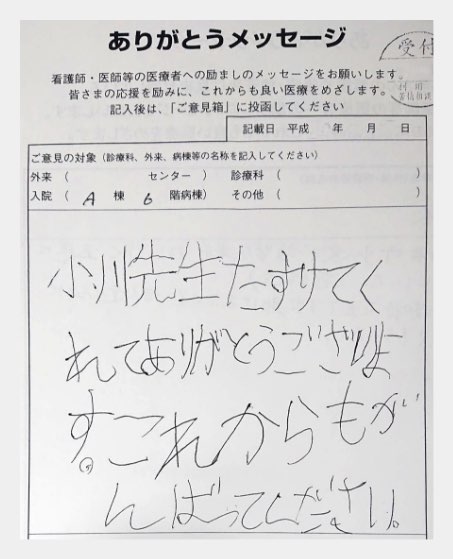 ありがとうメッセージ
受付
看護師・医師等の医療者への励ましのメッセージをお願いします。
皆さまの応援を励みに、これからも良い医療をめざします。
記入後は、「ご意見箱」に投函してください
記載日 平成 年 月 日
ご意見の対象(診療科、外来、病棟等の名称を記入してください)
外来 ( センター ) 診療科 ( )
入院 ( A 棟 6 階病棟) その他 ( )
小川先生たすけてく
れてありがとうございま
す。これからもが
んばってください。